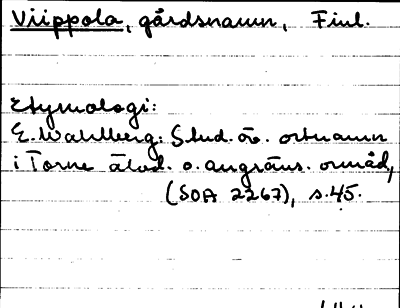 Viippola, gårdsnamn, Finl.
Etymologi:
E. Wahlberg: Stud. öv. ortnamn
i Torne älvd. o. angräns. område,
(SOA 2267), s. 45.